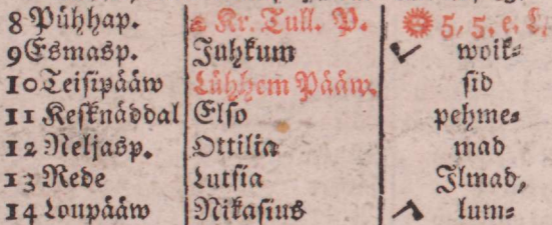 8 Pühhap. 2 Kr. Tull. P. 5, 5. e. L.
9 Esmasp. Juhkum woik=
10 Teisipääw Lühhem Pääw. sid
11 Kesknäddal Elso pehme=
12 Neljasp. Ottilia mad
13 Rede Lutsia Ilmad,
14 Loupääw Nikasius lum=